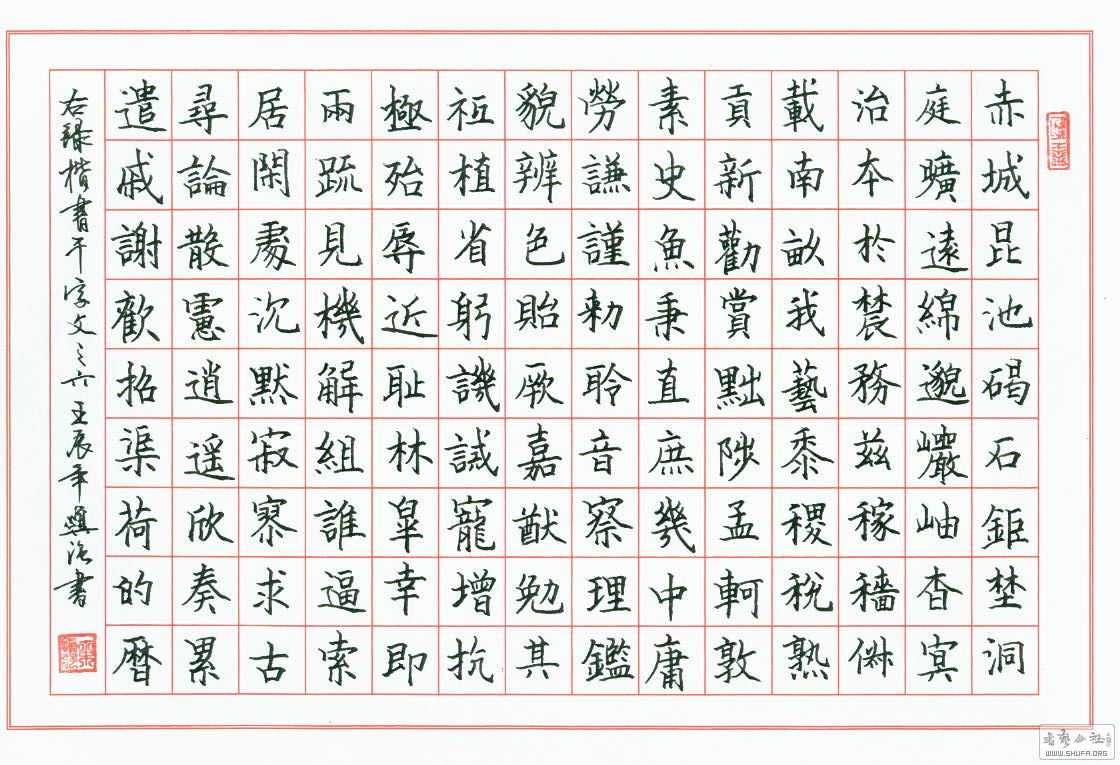 赤城昆池碣石鉅埜洞
庭曠遠綿邈巖岫杳冥
治本於農務茲稼穡俶
載南畝我藝黍稷稅熟
貢新勸賞黜陟孟軻敦
素史魚秉直庶幾中庸
勞謙謹勅聆音察理鑑
貌辨色貽厥嘉猷勉其
祗植省躬譏誡寵增抗
極殆辱近耻林皋幸即
兩疏見機解組誰逼索
居閑處沉默寂寥求古
尋論散慮逍遥欣奏累
遣戚謝歡招渠荷的曆
右錄楷書千字文之六 壬辰年 書
書藝公社
WWW.SHUFA.ORG